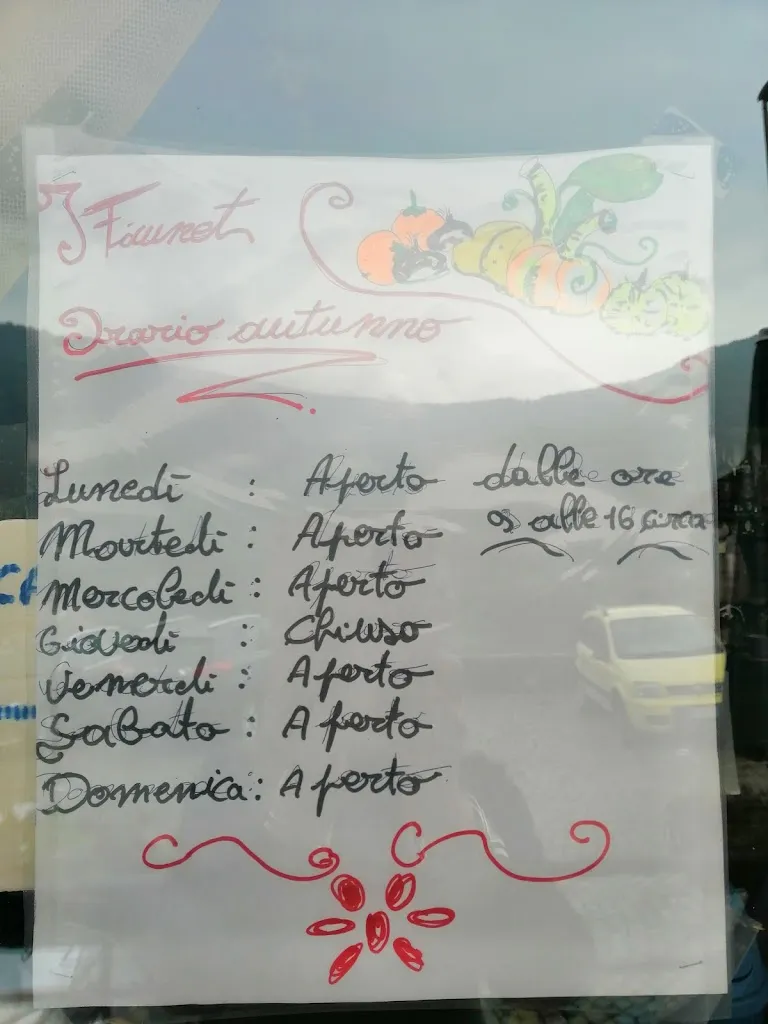 I Fiaunet
Orario autunno
Lunedì : Aperto dalle ore
Martedì : Aperto 9 alle 16 circa
Mercoledì : Aperto
Giovedì : Chiuso
Venerdì : Aperto
Sabato : Aperto
Domenica : Aperto